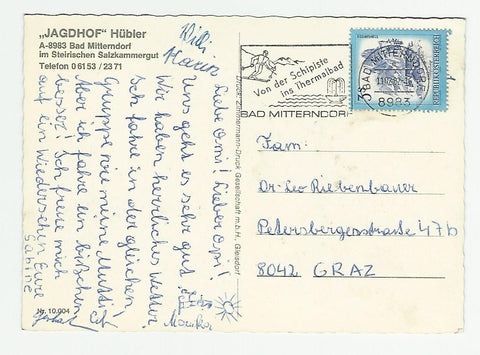 „JAGDHOF“ Hübler
A-8983 Bad Mitterndorf
im Steirischen Salzkammergut
Telefon 0 61 53 / 23 71
Willi
Liebe Omi! Lieber Opi!
Uns geht es sehr gut.
Wir haben herrliches Wetter.
Ich fahre in der gleichen
Gruppe wie meine Mutti!
Aber ich fahre ein bißchen
besser. Ich freue mich
auf ein Wiedersehen Eure
Sabine
Monika
Nr. 10.004
Druck: Zimmermann-Druck Gesellschaft m.b.H., Gleisdorf
Von der Schipiste
ins Thermalbad
BAD MITTERNDORF
BAD MITTERNDORF
8983
REPUBLIK ÖSTERREICH
Fam:
Dr. Leo Riebenbauer
Petersbergenstraße 47b
8042 GRAZ